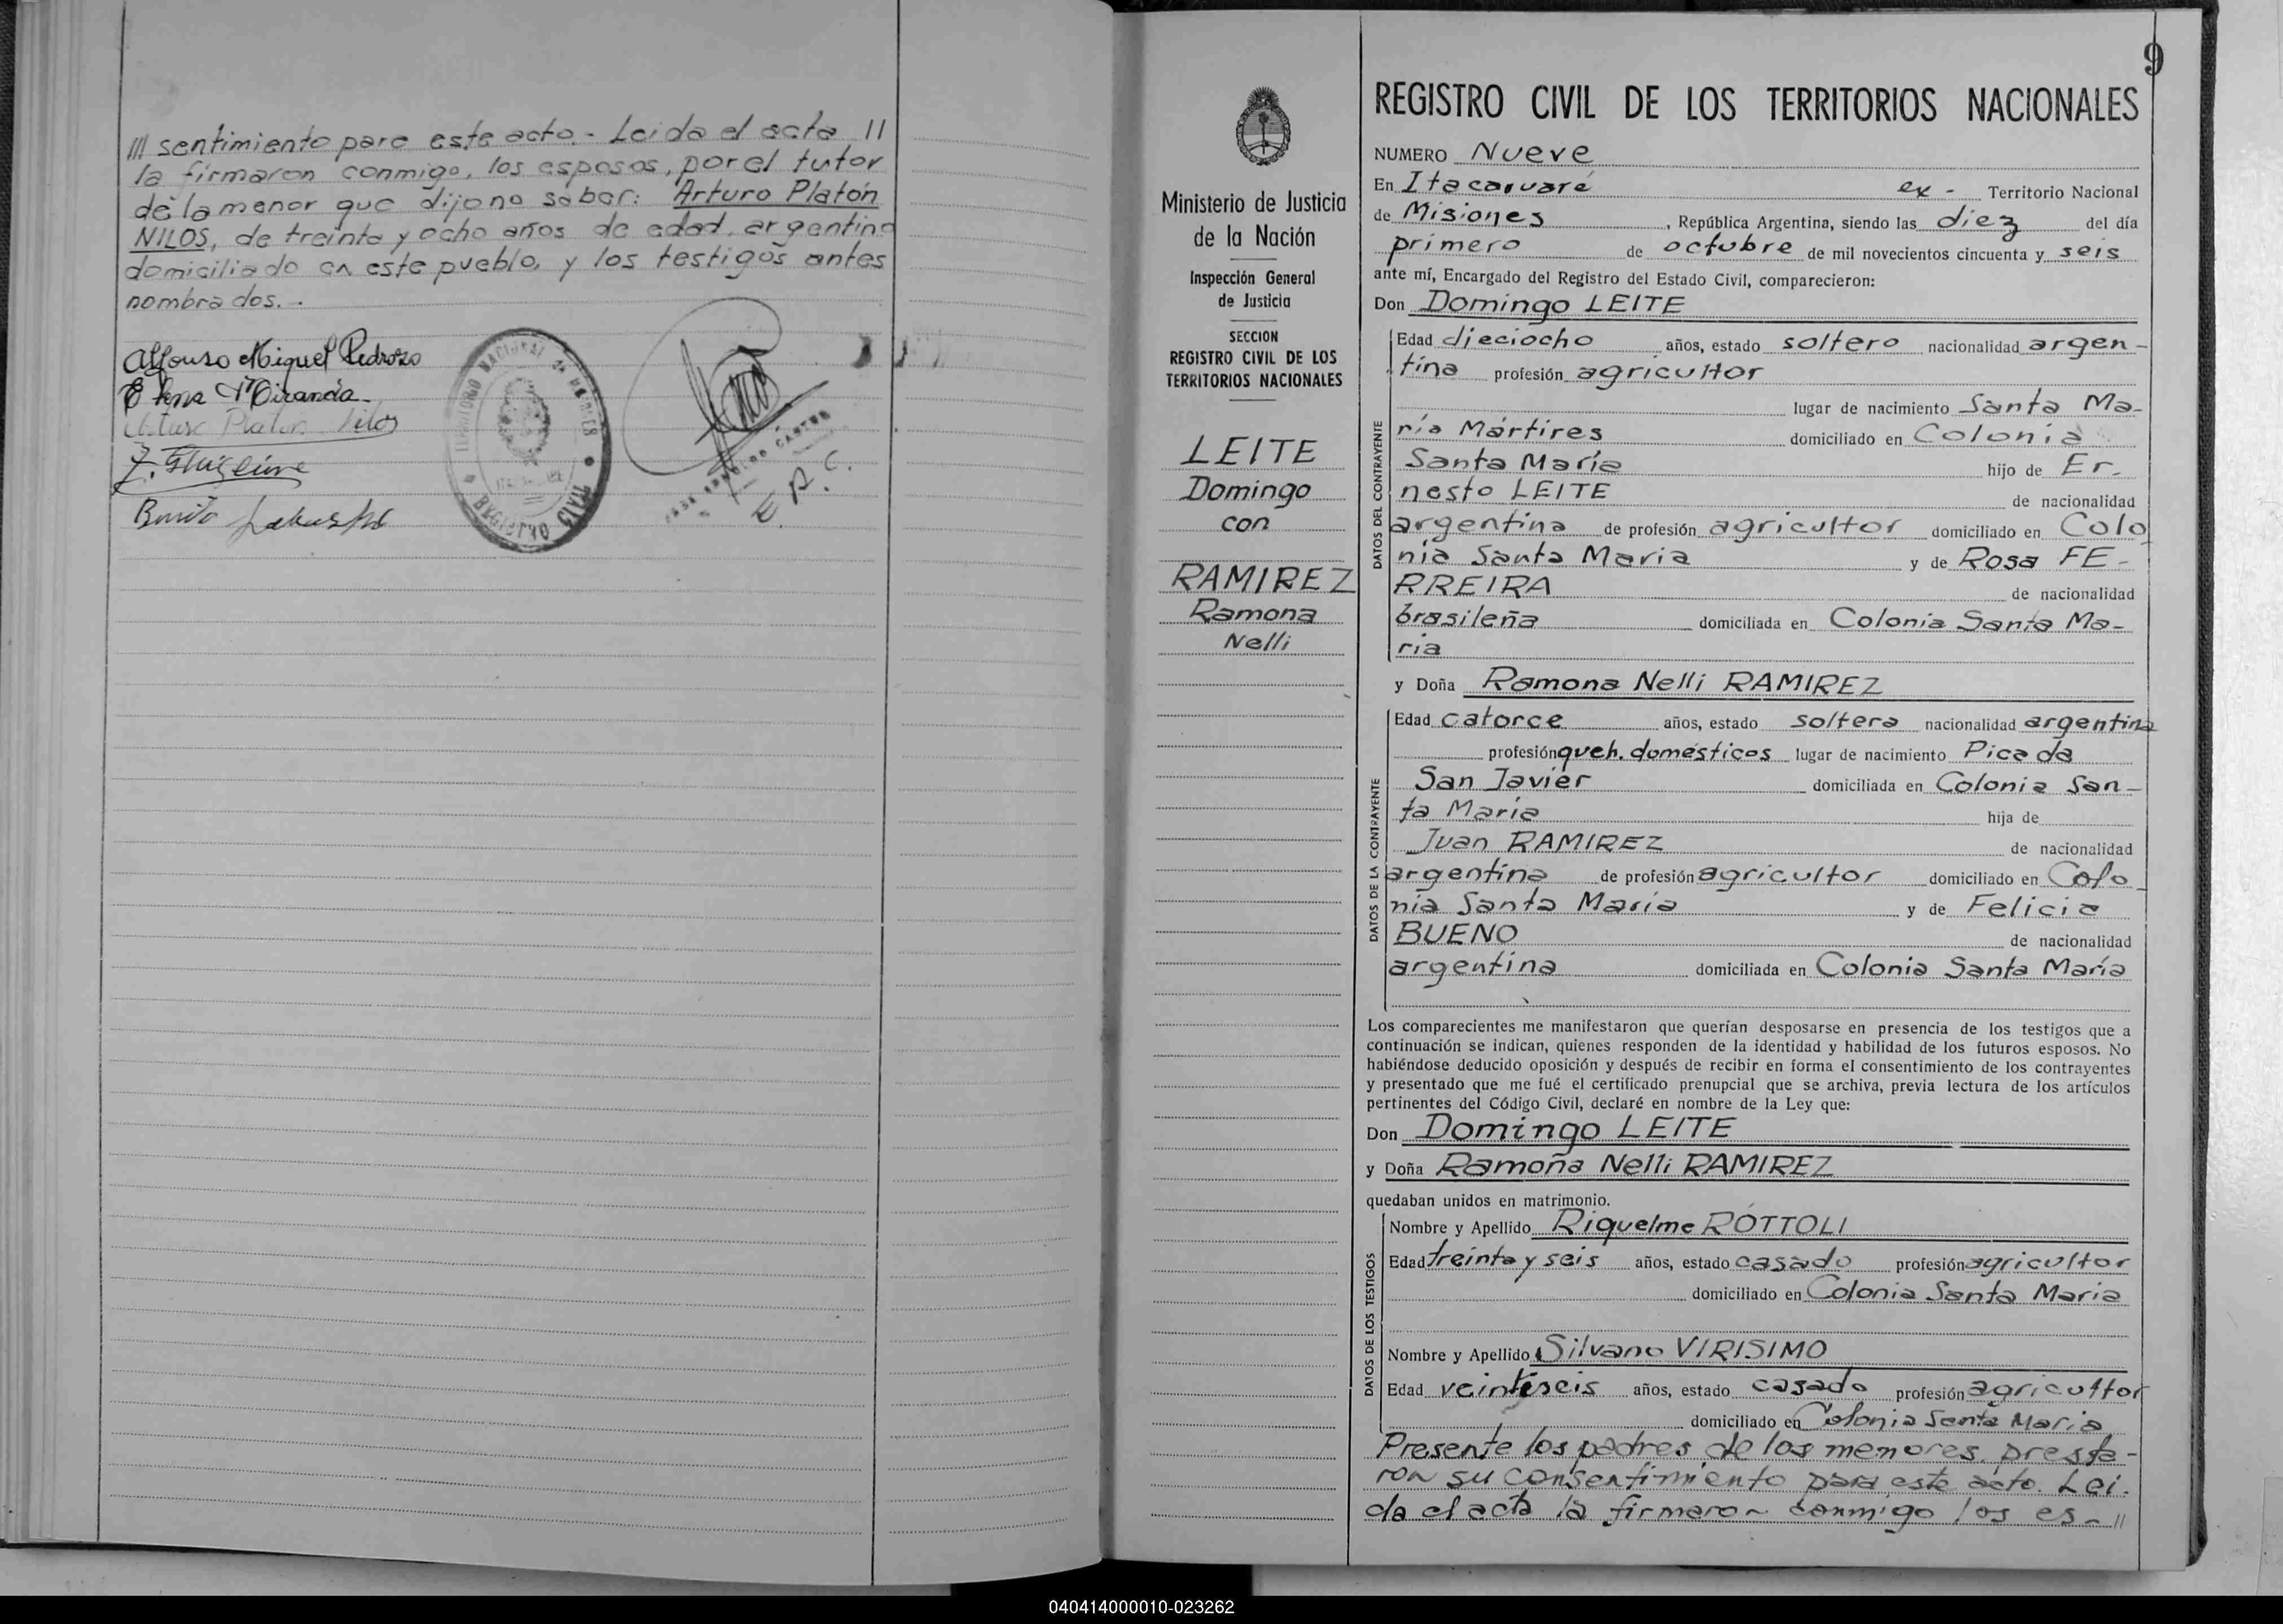 /// sentimiento para este acto.- Leida el acta //
la firmaron conmigo, los esposos, por el tutor
de la menor que dijo no saber: Arturo Platón
NILOS, de treinta y ocho años de edad, argentino
domiciliado en este pueblo, y los testigos antes
nombrados.-
Alfonso Miguel Pedrozo
Elena Miranda
Arturo Platon Nilos
TERRITORIO NACIONAL DE MISIONES
REGISTRO CIVIL
E. R. C.
9
REGISTRO CIVIL DE LOS TERRITORIOS NACIONALES
Ministerio de Justicia
de la Nación
Inspección General
de Justicia
SECCION
REGISTRO CIVIL DE LOS
TERRITORIOS NACIONALES
LEITE
Domingo
con
RAMIREZ
Ramona
Nelli
NUMERO Nueve
En Itacaruaré ex - Territorio Nacional
de Misiones, República Argentina, siendo las diez del día
primero de octubre de mil novecientos cincuenta y seis
ante mí, Encargado del Registro del Estado Civil, comparecieron:
Don Domingo LEITE
DATOS DEL CONTRAYENTE
Edad dieciocho años, estado soltero nacionalidad argen-
tina profesión agricultor
lugar de nacimiento Santa Ma-
ría Mártires domiciliado en Colonia
Santa María hijo de Er-
nesto LEITE de nacionalidad
argentina de profesión agricultor domiciliado en Colo
nia Santa Maria y de Rosa FE-
RREIRA de nacionalidad
brasileña domiciliada en Colonia Santa Ma-
ria
y Doña Ramona Nelli RAMIREZ
DATOS DE LA CONTRAYENTE
Edad catorce años, estado soltera nacionalidad argentina
profesión queh. domésticos lugar de nacimiento Picada
San Javier domiciliada en Colonia San-
ta María hija de
Juan RAMIREZ de nacionalidad
argentina de profesión agricultor domiciliado en Colo
nia Santa María y de Felicia
BUENO de nacionalidad
argentina domiciliada en Colonia Santa María
Los comparecientes me manifestaron que querían desposarse en presencia de los testigos que a
continuación se indican, quienes responden de la identidad y habilidad de los futuros esposos. No
habiéndose deducido oposición y después de recibir en forma el consentimiento de los contrayentes
y presentado que me fué el certificado prenupcial que se archiva, previa lectura de los artículos
pertinentes del Código Civil, declaré en nombre de la Ley que:
Don Domingo LEITE
y Doña Ramona Nelli RAMIREZ
quedaban unidos en matrimonio.
DATOS DE LOS TESTIGOS
Nombre y Apellido Riquelme ROTTOLI
Edad treinta y seis años, estado casado profesión agricultor
domiciliado en Colonia Santa Maria
Nombre y Apellido Silvano VIRISIMO
Edad veintiseis años, estado casado profesión agricultor
domiciliado en Colonia Santa Maria
Presente los padres de los menores, presta-
ron su consentimiento para este acto. Lei-
da el acta la firmaron conmigo los es-//
040414000010-023262